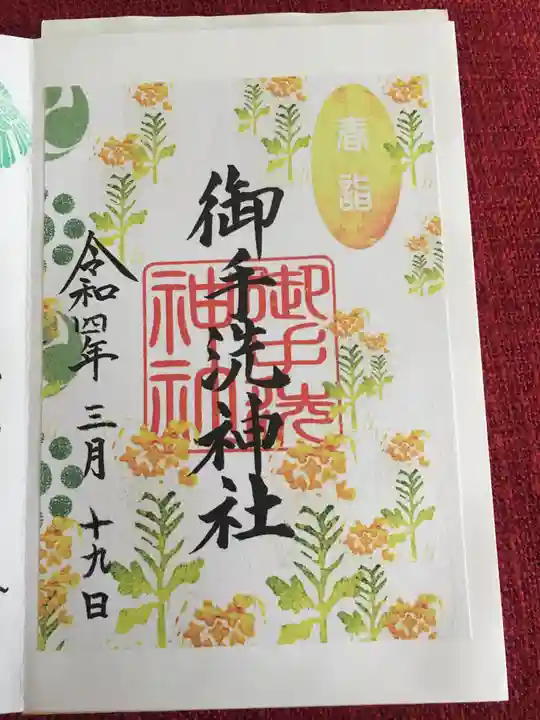 春詣
御手洗神社
御手洗
神社
令和四年三月十九日